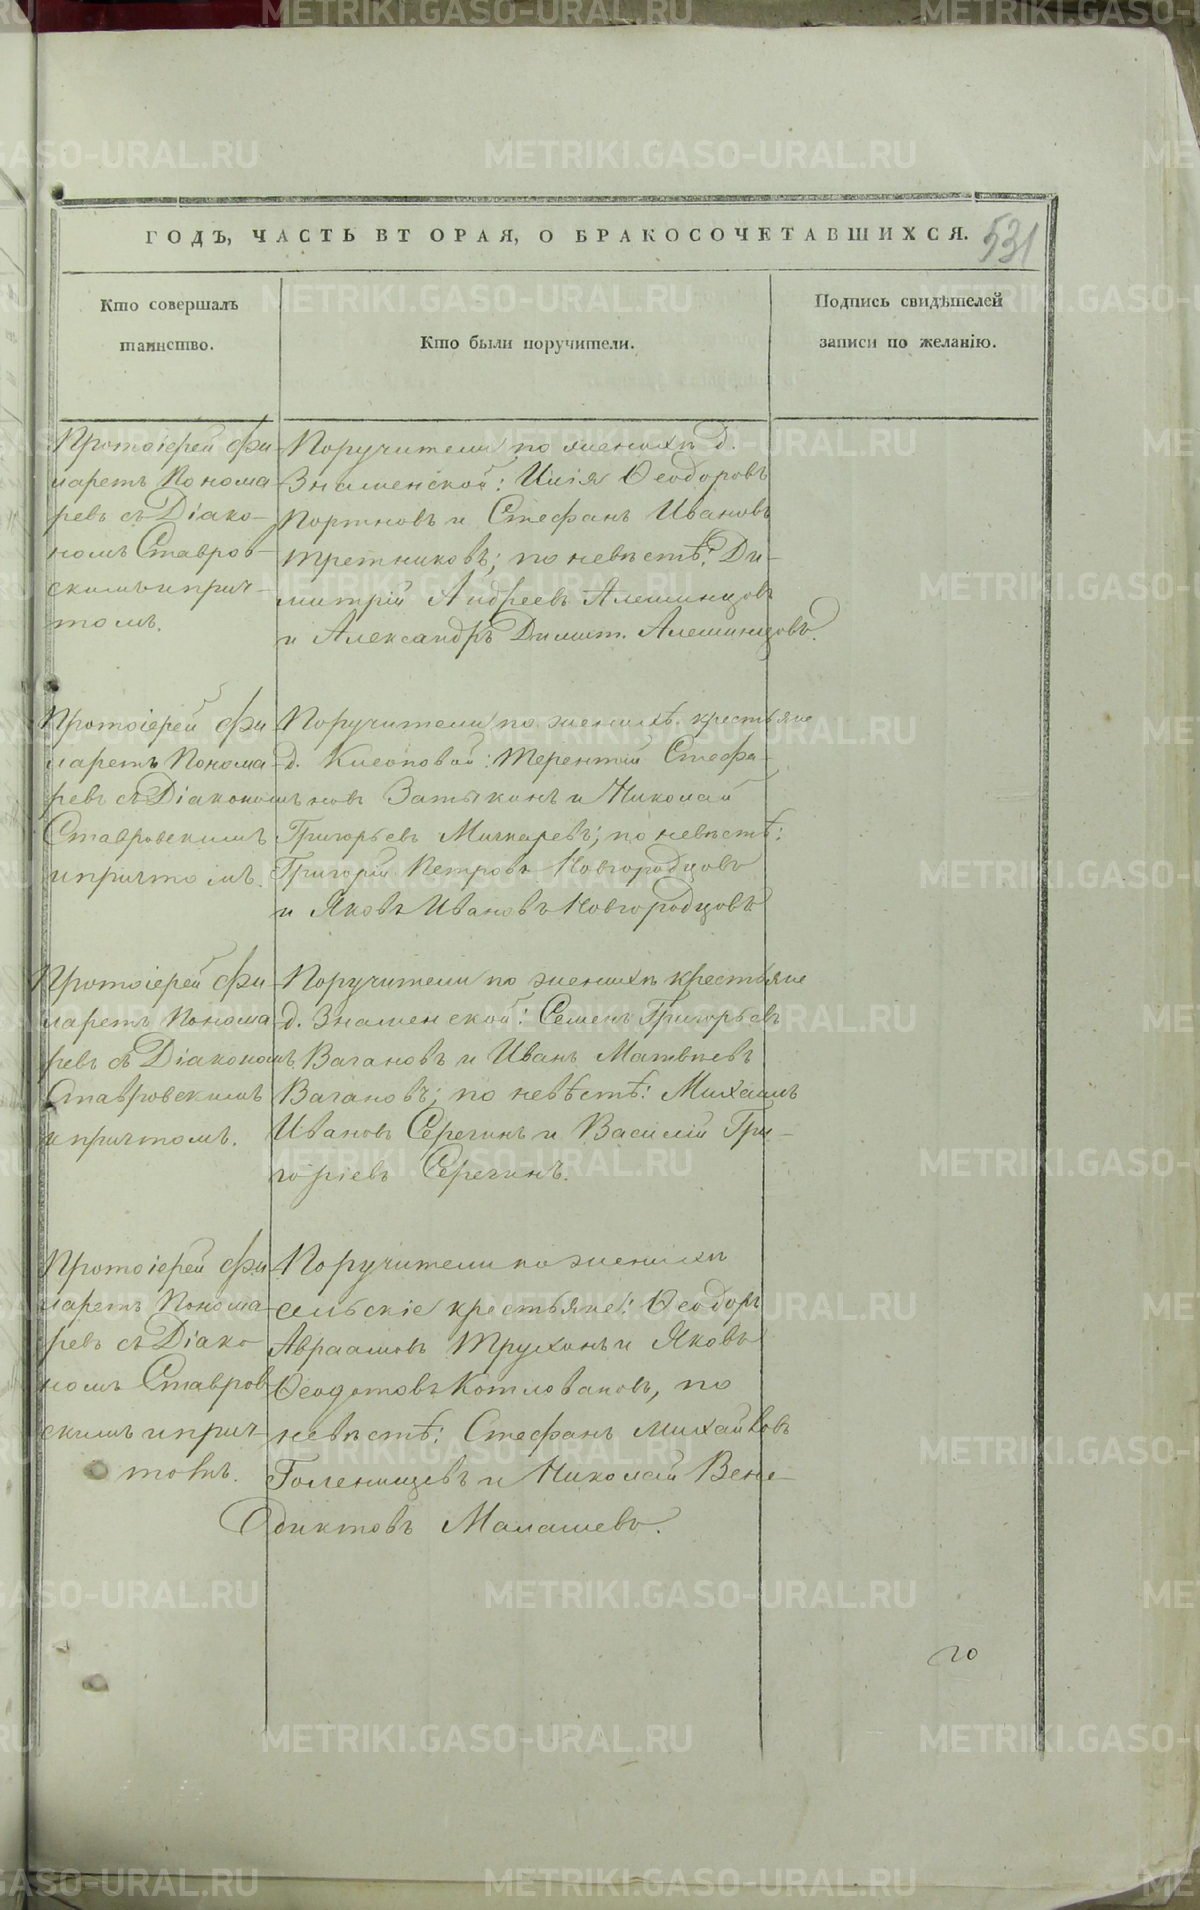 ГОДЪ, ЧАСТЬ ВТОРАЯ, О БРАКОСОЧЕТАВШИХСЯ.
531
Кто совершалъ
таинство.
Кто были поручители.
Подпись свидѣтелей
записи по желанію.
Протоіерей Фи
ларетъ Понома
ревъ съ Діако-
номъ Ставров-
скимъ и прич-
томъ.
Поручители по женихѣ д.
Знаменской: Илія Ѳеодоровъ
Портновъ и Стефанъ Ивановъ
Третниковъ; по невѣстѣ: Ди-
митрій Андреевъ Алемпіцовъ
и Александръ Димит. Алемпіцовъ.
Протоіерей Фи
ларетъ Понома
ревъ съ Діакономъ
Ставровскимъ
и причтомъ.
Поручители по женихѣ крестьяне
д. Клеоповой: Терентій Стефа-
новъ Затыкинъ и Николай
Григорьевъ Мичкаревъ; по невѣстѣ:
Григорій Петровъ Новгородцовъ
и Яковъ Ивановъ Новгородцовъ
Протоіерей Фи
ларетъ Понома
ревъ съ Діакономъ
Ставровскимъ
и причтомъ.
Поручители по женихѣ крестьяне
д. Знаменской: Семенъ Григорьевъ
Вагановъ и Иванъ Матвѣевъ
Вагановъ; по невѣстѣ: Михаилъ
Ивановъ Серегинъ и Василій Гри-
горіевъ Серегинъ.
Протоіерей Фи
ларетъ Понома
ревъ съ Діако
номъ Ставров
скимъ и прич-
томъ.
Поручители по женихѣ
сельскіе крестьяне: Ѳеодоръ
Авраамовъ Трухинъ и Яковъ
Ѳеодотовъ Котловановъ, по
невѣстѣ: Стефанъ Михайловъ
Голенищевъ и Николай Вене-
диктовъ Малашевъ.
METRIKI.GASO-URAL.RU